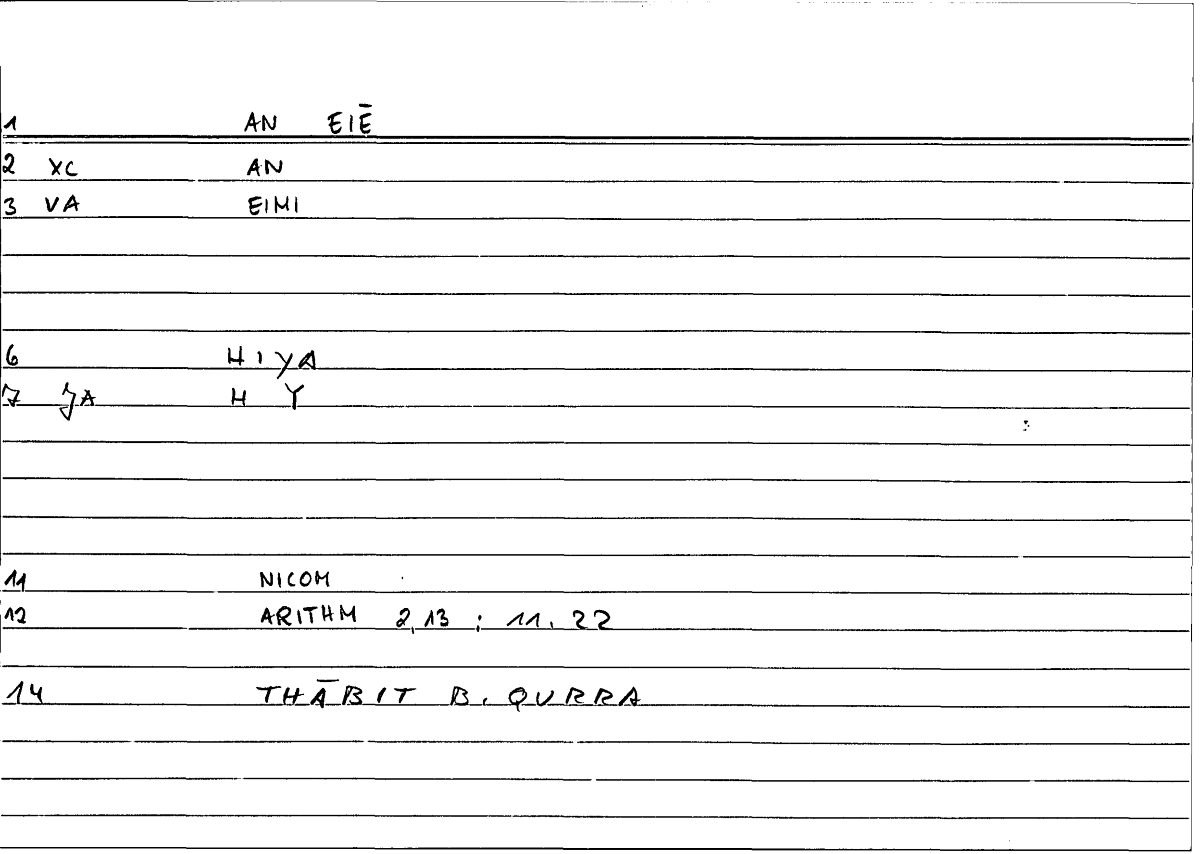 1 AN EIĒ
2 XC AN
3 VA EIMI
6 HIYA
7 JA H Y
11 NICOM
12 ARITHM 2,13 : 11. 22
14 THĀBIT B. QURRA